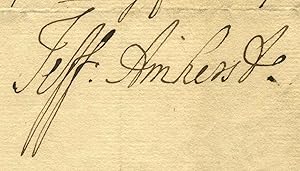 Jeff. Amherst.